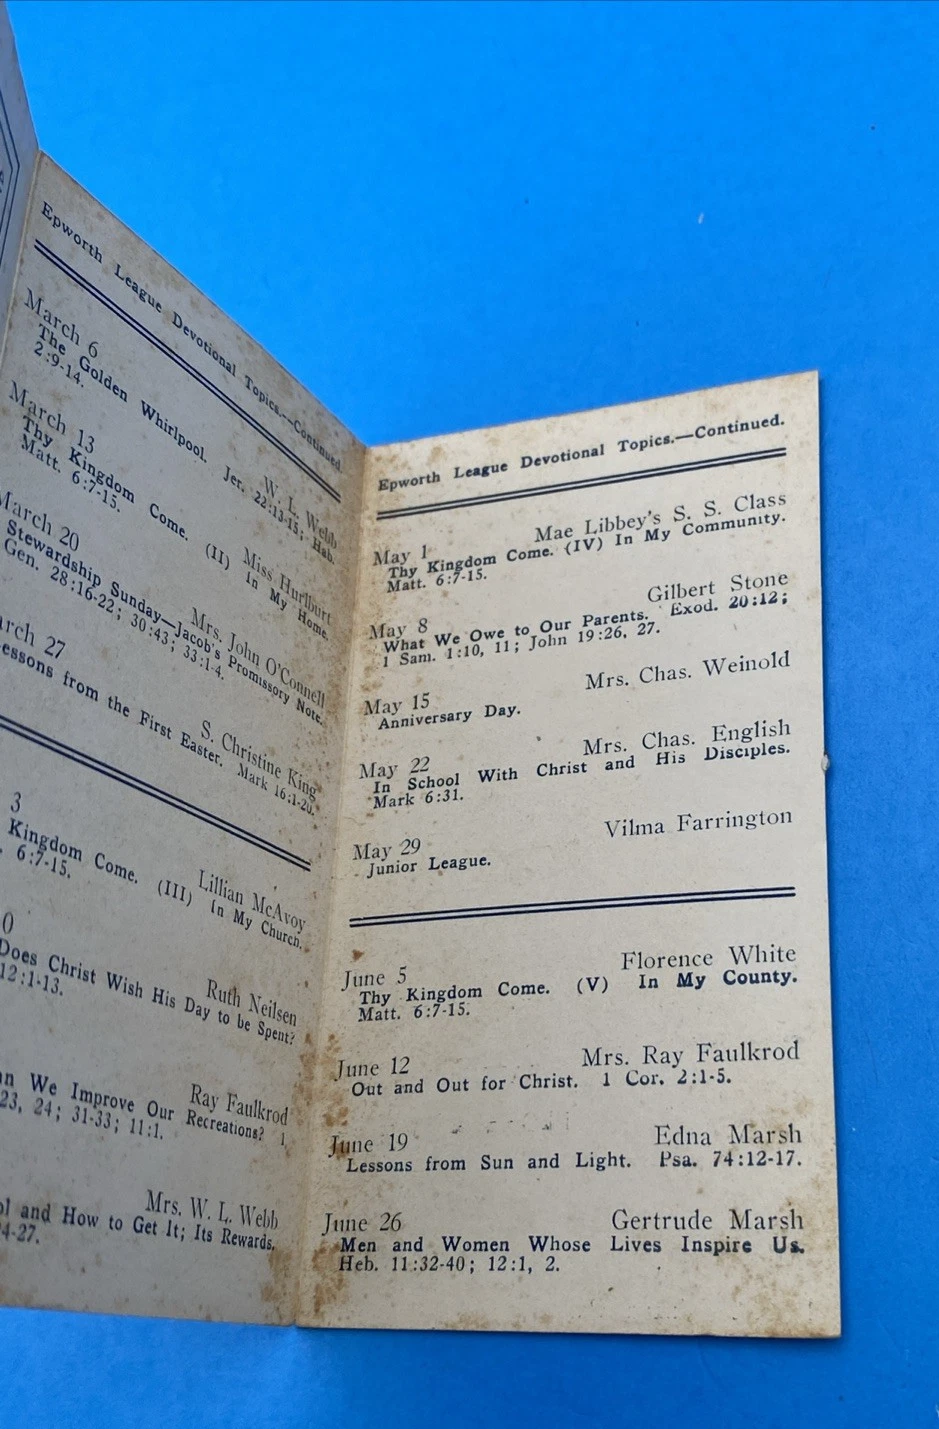 Epworth League Devotional Topics.—Continued.
March 6
W. L. Webb
The Golden Whirlpool. Jer. 22:13-15; Hab.
2:9-14.
March 13
Miss Hurlburt
Thy Kingdom Come. (II) In My Home.
Matt. 6:7-15.
March 20
Mrs. John O'Connell
Stewardship Sunday—Jacob's Promissory Note.
Gen. 28:16-22; 30:43; 33:1-4.
27
S. Christine King
from the First Easter. Mark 16:1-20.
3
Lillian McAvoy
Kingdom Come. (III) In My Church.
6:7-15.
Ruth Neilsen
Does Christ Wish His Day to be Spent?
12:1-13.
Ray Faulkrod
We Improve Our Recreations? 1
23, 24; 31-33; 11:1.
Mrs. W. L. Webb
and How to Get It; Its Rewards.
4-27.
Epworth League Devotional Topics.—Continued.
May 1 Mae Libbey's S. S. Class
Thy Kingdom Come. (IV) In My Community.
Matt. 6:7-15.
May 8 Gilbert Stone
What We Owe to Our Parents. Exod. 20:12;
1 Sam. 1:10, 11; John 19:26, 27.
May 15 Mrs. Chas. Weinold
Anniversary Day.
May 22 Mrs. Chas. English
In School With Christ and His Disciples.
Mark 6:31.
May 29 Vilma Farrington
Junior League.
June 5 Florence White
Thy Kingdom Come. (V) In My County.
Matt. 6:7-15.
June 12 Mrs. Ray Faulkrod
Out and Out for Christ. 1 Cor. 2:1-5.
June 19 Edna Marsh
Lessons from Sun and Light. Psa. 74:12-17.
June 26 Gertrude Marsh
Men and Women Whose Lives Inspire Us.
Heb. 11:32-40; 12:1, 2.